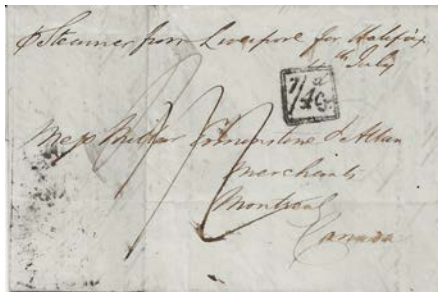 p Steamer from Liverpool for Halifax
4th July
Messrs Millar Edmonstone & Allan
Merchants
Montreal
Canada